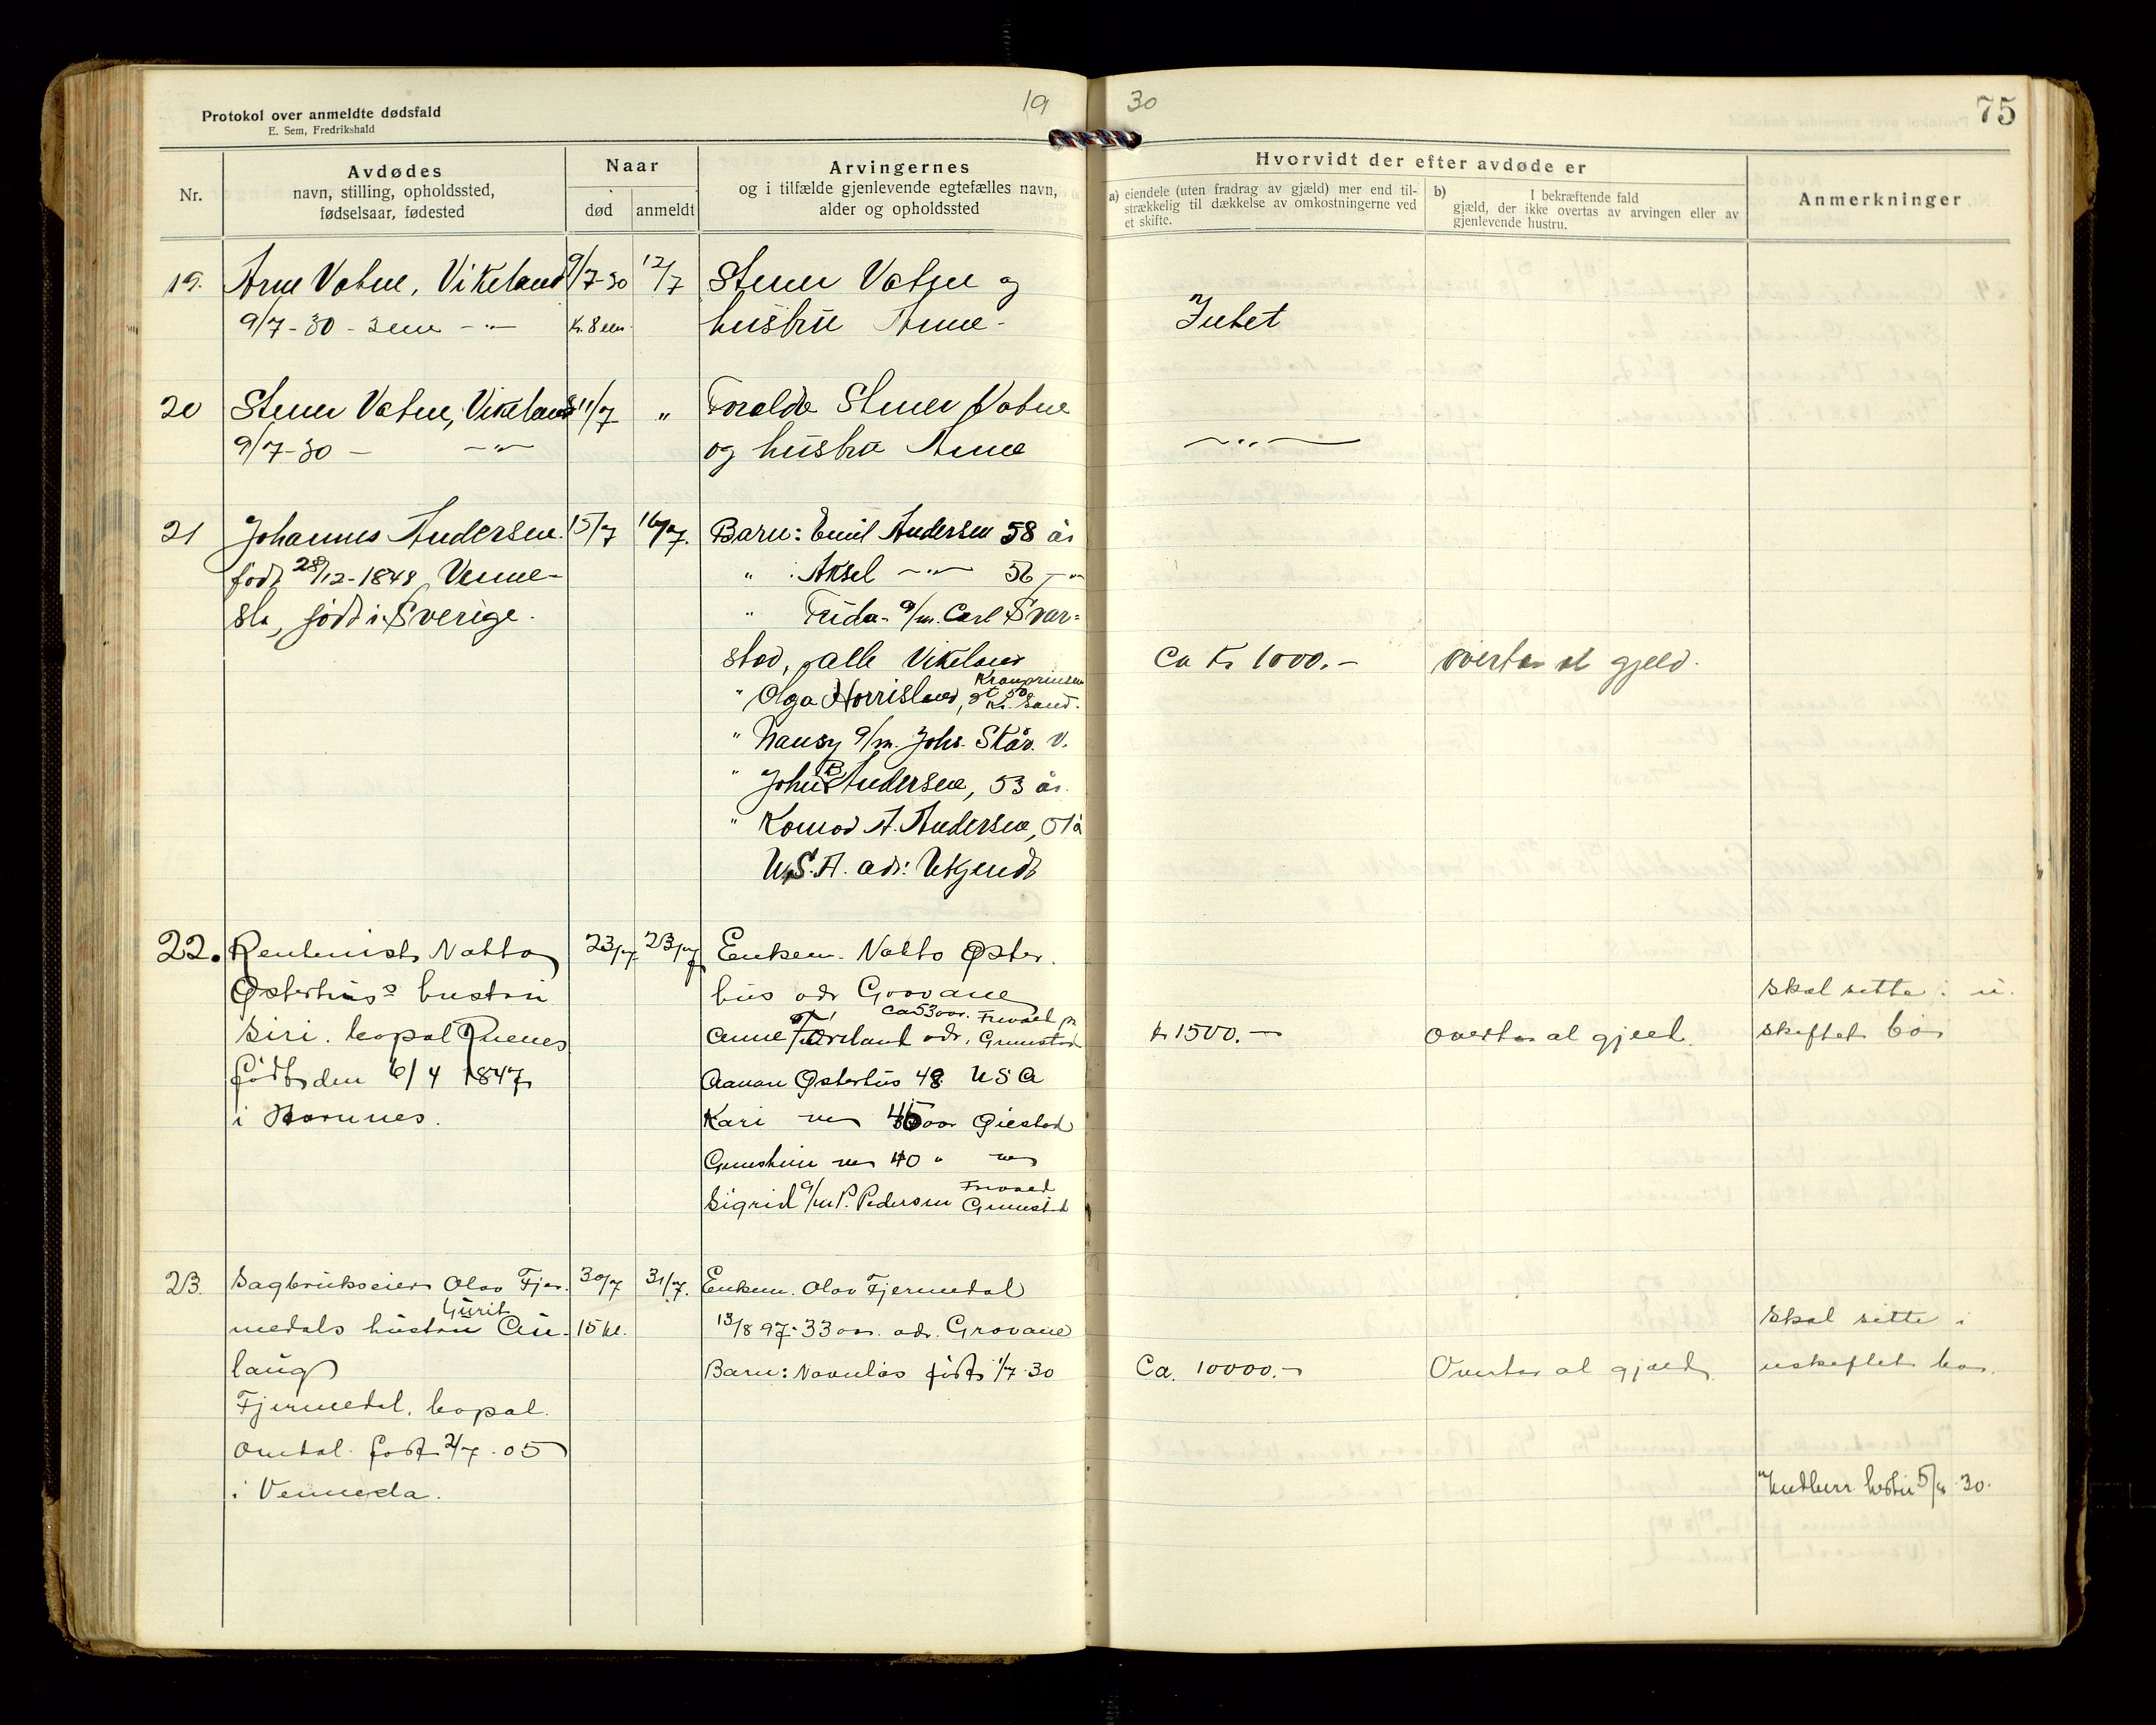 Protokol over anmeldte dødsfald
E. Sem, Fredrikshald
19 30
75
Nr.
Avdødes
navn, stilling, opholdssted,
fødselsaar, fødested
Naar
død
anmeldt
Arvingernes
og i tilfælde gjenlevende egtefælles navn,
alder og opholdssted
Hvorvidt der efter avdøde er
a) eiendele (uten fradrag av gjæld) mer end til-
strækkelig til dækkelse av omkostningerne ved
et skifte.
b) I bekræftende fald
gjæld, der ikke overtas av arvingen eller av
gjenlevende hustru.
Anmerkninger
19. Arne Vatne, Vikeland 9/7-30 12/7 Stener Vatne og
9/7-30 - K. 8 em. hustru Anne - Intet
20 Stener Vatne, Vikeland 11/7 " Foreldre Stener Vatne
9/7-30 - -"- og hustru Anne -"-
21 Johannes Andersen. 15/7 16/7. Barn: Emil Andersen 58 år
født 28/12-1848, Venne- " Aksel -"- 56 -"-
sla, født i Sverige. " Frida g/m. Carl Svar=
stad, alle Vikeland Ca Kr 1000.- overtar al gjeld.
" Olga Horrisland, Kronprinsens gt 50 Kr. Sand.
" Nansy g/m. Johs. Skår. V.
" John B Andersen, 53 år.
" Konrad A. Andersen, 51 å
U.S.A. adr: Ukjendt
22. Rentenist Natto 23/7 23/7 Enkem. Natto Øster.
Østerhus's hustru hus adr Grovane Skal sitte i u.
Siri. kopal Ruenes Anne Færeland ca 53 aar. adr. Grimstad kr 1500.- overtar al gjeld. skiftet bo
født den 6/4 1847 Aanon Østerhus 48 USA
i Hornnes. Kari -"- 45 aar Øiestad
Gunstein -"- 40 " -"-
Sigrid g/m P. Pedersen Grimstad
23. Sagbrukseier Olav Fjer- 30/7 31/7. Enkem. Olav Fjermedal
medals hustru Gurit Au- 15 kl. 13/8 97-33 aar. adr. Grovane Skal sitte i
laug Barn: født 1/7 30 Ca. 10000.- Overtar al gjæld uskiftet bo.
Fjermedal, kopal.
Omdal. født 2/7 - 05
i Vennesla. 5/8 30.